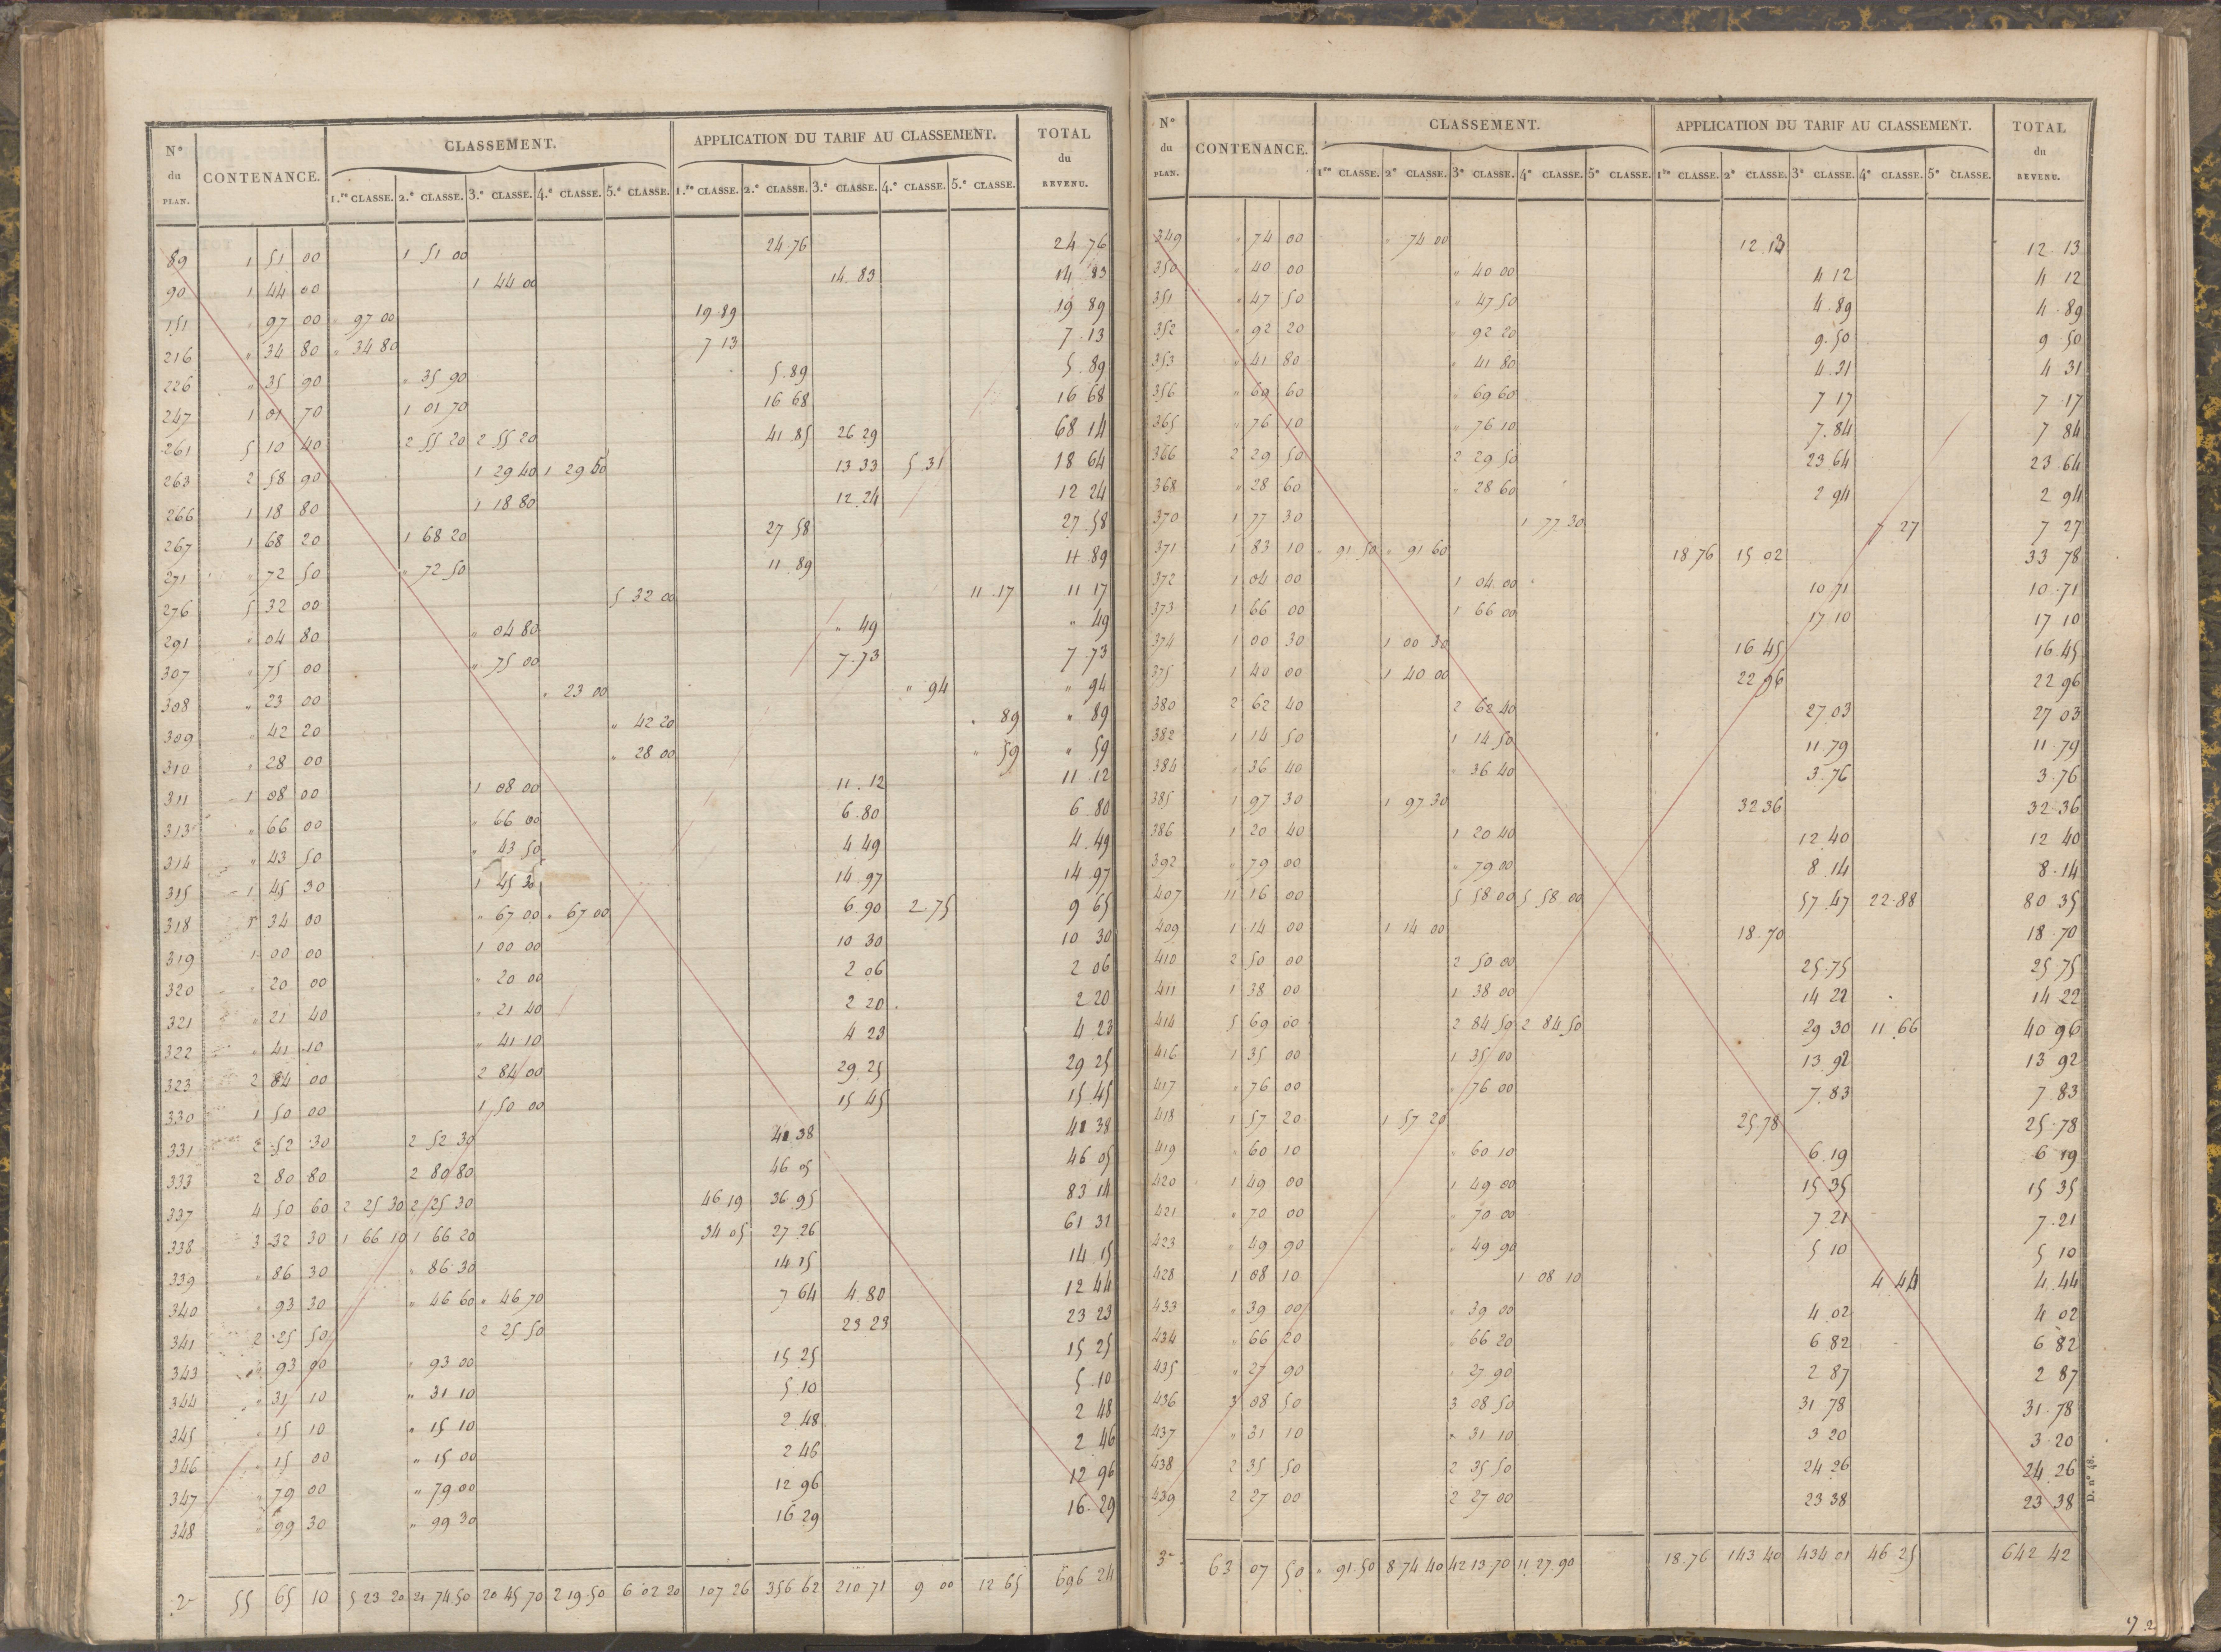 N° du PLAN. CONTENANCE. CLASSEMENT. APPLICATION DU TARIF AU CLASSEMENT. TOTAL du REVENU.
1.re CLASSE. 2.e CLASSE. 3.e CLASSE. 4.e CLASSE. 5.e CLASSE. 1.re CLASSE. 2.e CLASSE. 3.e CLASSE. 4.e CLASSE. 5.e CLASSE.
89 1 51 00 1 51 00 24.76 24 76
90 1 44 00 1 44 00 14.83 14 83
151 " 97 00 " 97 00 19.89 19 89
216 " 34 80 " 34 80 7 13 7.13
226 " 35 90 " 35 90 5.89 5.89
247 1 01 70 1 01 70 16 68 16 68
261 5 10 40 2 55 20 2 55 20 41.85 26 29 68 14
263 2 58 90 1 29 40 1 29 50 13 33 5 31 18 64
266 1 18 80 1 18 80 12.24 12 24
267 1 68 20 1 68 20 27 58 27.58
271 " 72 50 " 72 50 11.89 11.89
276 5 32 00 5 32 00 11.17 11 17
291 " 04 80 " 04 80 " 49 " 49
307 " 75 00 " 75 00 7.73 7.73
308 " 23 00 " 23 00 " 94 " 94
309 " 42 20 " 42 20 " 89 " 89
310 " 28 00 " 28 00 " 59 " 59
311 1 08 00 1 08 00 11.12 11 12
313 " 66 00 " 66 00 6.80 6.80
314 " 43 50 " 43 50 4 49 4.49
315 1 45 30 1 45 30 14.97 14 97
318 1 34 00 " 67 00 " 67 00 6.90 2.75 9 65
319 1 00 00 1 00 00 10 30 10 30
320 " 20 00 " 20 00 2 06 2 06
321 " 21 40 " 21 40 2 20 2 20
322 " 41 10 " 41 10 4 23 4 23
323 2 84 00 2 84 00 29 25 29 25
330 1 50 00 1 50 00 15 45 15.45
331 2 52 30 2 52 30 41 38 41 38
333 2 80 80 2 80 80 46 05 46 05
337 4 50 60 2 25 30 2 25 30 46 19 36 95 83 14
338 3 32 30 1 66 10 1 66 20 34 05 27.26 61 31
339 " 86 30 " 86 30 14 15 14 15
340 " 93 30 " 46 60 " 46 70 7 64 4.80 12 44
341 2 25 50 2 25 50 23 23 23 23
343 " 93 00 " 93 00 15 25 15 25
344 " 31 10 " 31 10 5 10 5.10
345 " 15 10 " 15 10 2 48 2 48
346 " 15 00 " 15 00 2 46 2 46
347 " 79 00 " 79 00 12 96 12 96
348 " 99 30 " 99 30 16 29 16.29
2 55 65 10 5 23 20 21 74 50 20 45 70 2 19 50 6 02 20 107 26 356 62 210 71 9 00 12 65 696 24
N° du PLAN. CONTENANCE. CLASSEMENT. APPLICATION DU TARIF AU CLASSEMENT. TOTAL du REVENU.
1re CLASSE. 2e CLASSE. 3e CLASSE. 4e CLASSE. 5e CLASSE. 1re CLASSE. 2e CLASSE. 3e CLASSE. 4e CLASSE. 5e CLASSE.
349 " 74 00 " 74 00 12.13 12.13
350 " 40 00 " 40 00 4 12 4 12
351 " 47 50 " 47 50 4.89 4.89
352 " 92 20 " 92 20 9.50 9 50
353 " 41 80 " 41 80 4.31 4 31
356 " 69 60 " 69 60 7 17 7.17
365 " 76 10 " 76 10 7.84 7 84
366 2 29 50 2 29 50 23 64 23.64
368 " 28 60 " 28 60 2 94 2 94
370 1 77 30 1 77 30 7 27 7 27
371 1 83 10 " 91 50 " 91 60 18 76 15 02 33 78
372 1 04 00 1 04 00 10.71 10.71
373 1 66 00 1 66 00 17.10 17 10
374 1 00 30 1 00 30 16 45 16 45
375 1 40 00 1 40 00 22 96 22 96
380 2 62 40 2 62 40 27.03 27 03
382 1 14 50 1 14 50 11.79 11.79
384 " 36 40 " 36 40 3.76 3.76
385 1 97 30 1 97 30 32 36 32.36
386 1 20 40 1 20 40 12.40 12 40
392 " 79 00 " 79 00 8.14 8.14
407 11 16 00 5 58 00 5 58 00 57.47 22.88 80 35
409 1 14 00 1 14 00 18.70 18.70
410 2 50 00 2 50 00 25.75 25 75
411 1 38 00 1 38 00 14 22 14 22
414 5 69 00 2 84 50 2 84 50 29 30 11.66 40 96
416 1 35 00 1 35 00 13.92 13 92
417 " 76 00 " 76 00 7.83 7 83
418 1 57 20 1 57 20 25.78 25.78
419 " 60 10 " 60 10 6.19 6 19
420 1 49 00 1 49 00 15 35 15 35
421 " 70 00 " 70 00 7.21 7.21
423 " 49 90 " 49 90 5 10 5 10
428 1 08 10 1 08 10 4.44 4.44
433 " 39 00 " 39 00 4.02 4 02
434 " 66 20 " 66 20 6 82 6 82
435 " 27 90 " 27 90 2 87 2 87
436 3 08 50 3 08 50 31 78 31.78
437 " 31 10 " 31 10 3 20 3.20
438 2 35 50 2 35 50 24.26 24 26
439 2 27 00 2 27 00 23 38 23 38
3 63 07 50 " 91.50 8 74.40 42 13 70 11 27.90 18.76 143 40 434 01 46 25 642 42
D. n° 48.